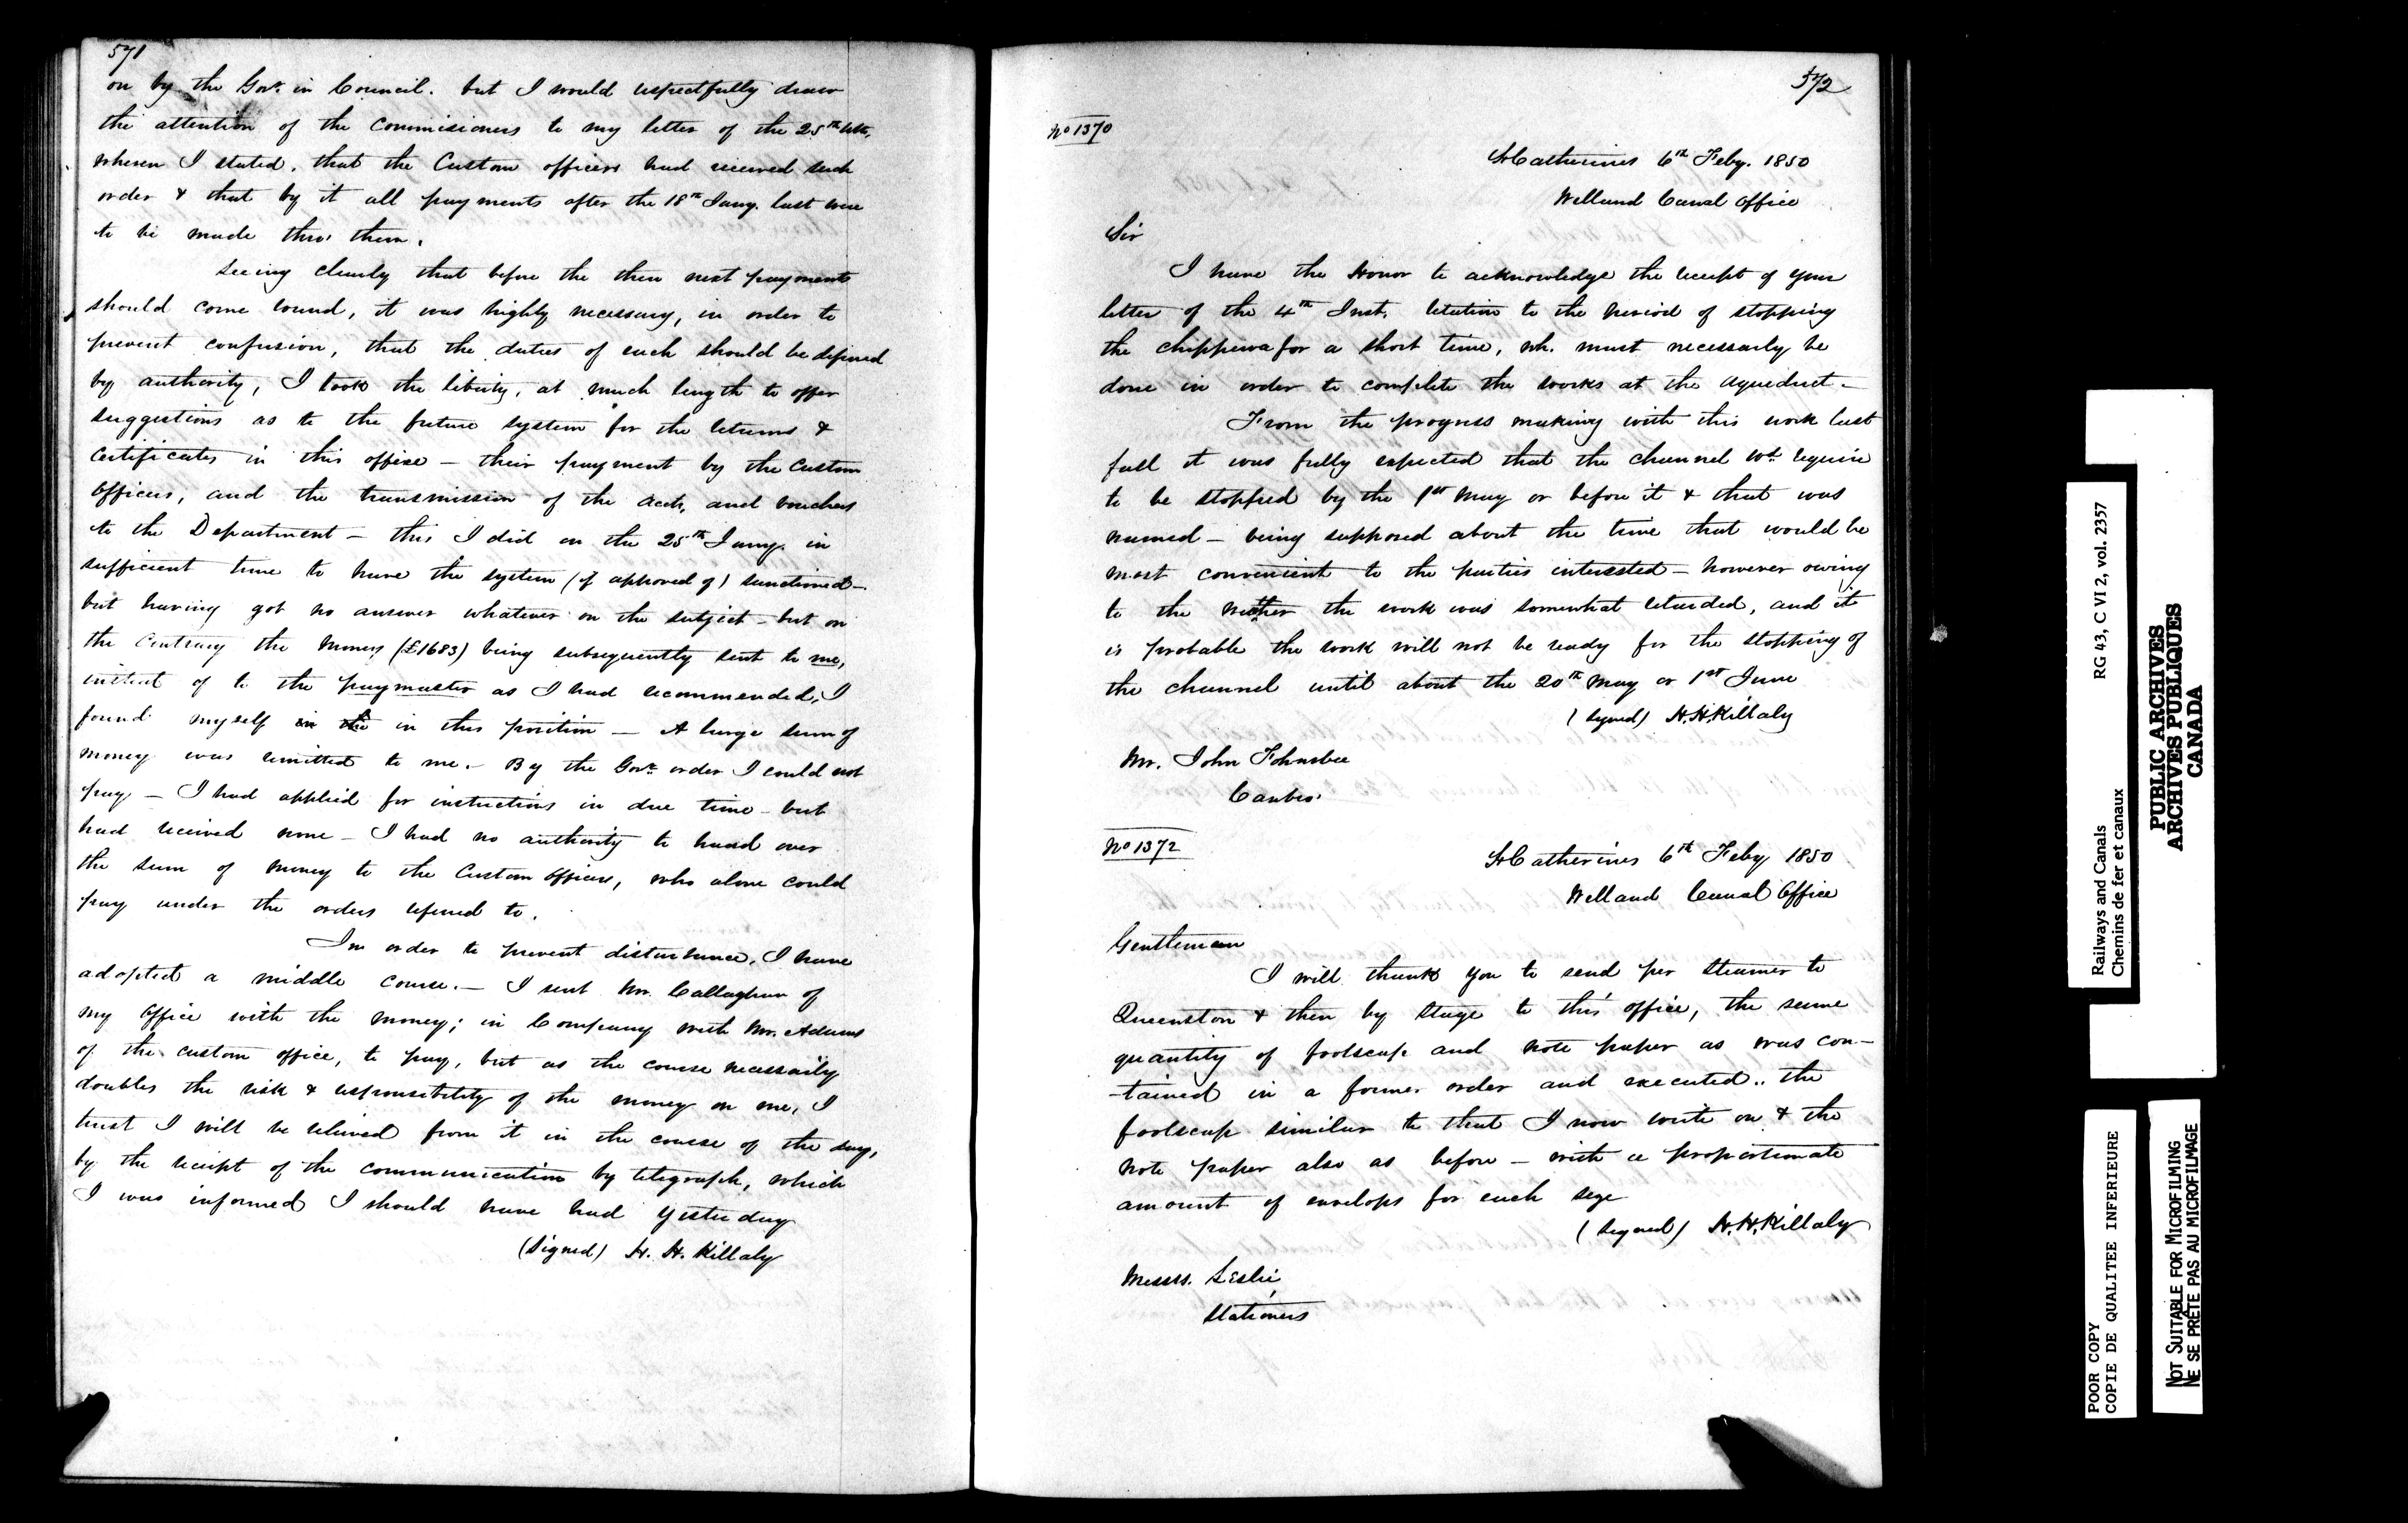 571
on by the Govr. in Council. but I would respectfully draw
the attention of the Commisioners to my letter of the 25th Ulto,
wherein I stated, that the Custom officers had received such
order & that by it all payments after the 18th Jany. last were
to be made thro' them.
Seeing clearly that before the then next payments
should come round, it was highly necessary, in order to
prevent confusion, that the duties of each should be defined
by authority, I took the liberty, at much length to offer
suggestions as to the future system for the returns &
Certificates in this office – their payment by the Custom
Officers, and the transmission of the accts, and vouchers
to the Department – this I did on the 25th Jany. in
sufficient time to have the system (if approved of) sanctioned –
but having got no answer whatever on the subject – but on
the Contrary the money (£1683) being subsequently sent to me,
insteat of to the paymaster as I had recommended, I
found myself in the in this position – A large sum of
money was remitted to me. – By the Govr. order I could not
pay – I had applied for instructions in due time – but
had received none – I had no authority to hand over
the sum of money to the Custom Officers, who alone could
pay under the orders refered to.
In order to prevent disturbance, I have
adopted a middle course. – I sent Mr. Callaghan of
my Office with the money; in Company with Mr. Adams
of the custom office, to pay, but as the course necessarily
doubles the risk & responsibility of the money on me, I
trust I will be relieved from it in the course of the day,
by the receipt of the communication by telegraph, which
I was informed I should have had yesterday
(Signed) H. H. Killaly
572
No 1370
St Catherines 6th Feby. 1850
Welland Canal Office
Sir
I have the Honor to acknowledge the receipt of your
letter of the 4th Inst. relation to the period of stopping
the chippewa for a short time, wh. must necessarily be
done in order to complete the works at the aqueduct –
From the progress making with this work last
fall it was fully expected that the channel wd. require
to be stopped by the 1st May or before it & that was
named – being supposed about the time that would be
most convenient to the parties interested – however owing
to the wether the work was somewhat retarded, and it
is probable the work will not be ready for the stopping of
the channel until about the 20th May or 1st June
(signed) H.H. Killaly
Mr. John
No 1372
St Catherines 6th Feby 1850
Welland Canal Office
Gentleman
I will thank you to send per Steamer to
Queenston & then by Stage to this office, the same
quantity of foolscap and note paper as was con–
–tained in a former order and executed.. The
foolscap similar to that I now write on & the
note paper also as before – with a proportionate
amount of envelops for each
(signed) H.H. Killaly
Messrs. Leslie
Stationers
Railways and Canals RG 43, C VI 2, vol. 2357
Chemins de fer et canaux
PUBLIC ARCHIVES
ARCHIVES PUBLIQUES
CANADA
POOR COPY
COPIE DE QUALITEE INFERIEURE
NOT SUITABLE FOR MICROFILMING
NE SE PRÊTE PAS AU MICROFILMAGE